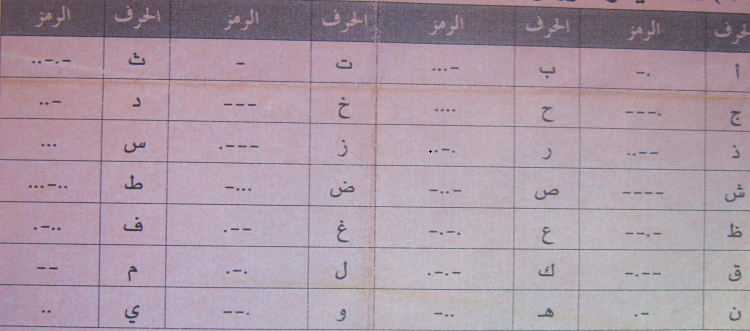 الحرف الرمز الحرف الرمز الحرف الرمز الحرف الرمز
أ -. ب ...- ت - ث ..-.-
ج ---. ح .... خ --- د ..-
ذ ..-- ر ..-. ز .--- س ...
ش ---- ص -..- ض -... ط ...-..
ظ --.- ع -.-. غ .-- ف .-..
ق -.-- ك .-.- ل .-. م --
ن .- هـ -.. و --. ي ..